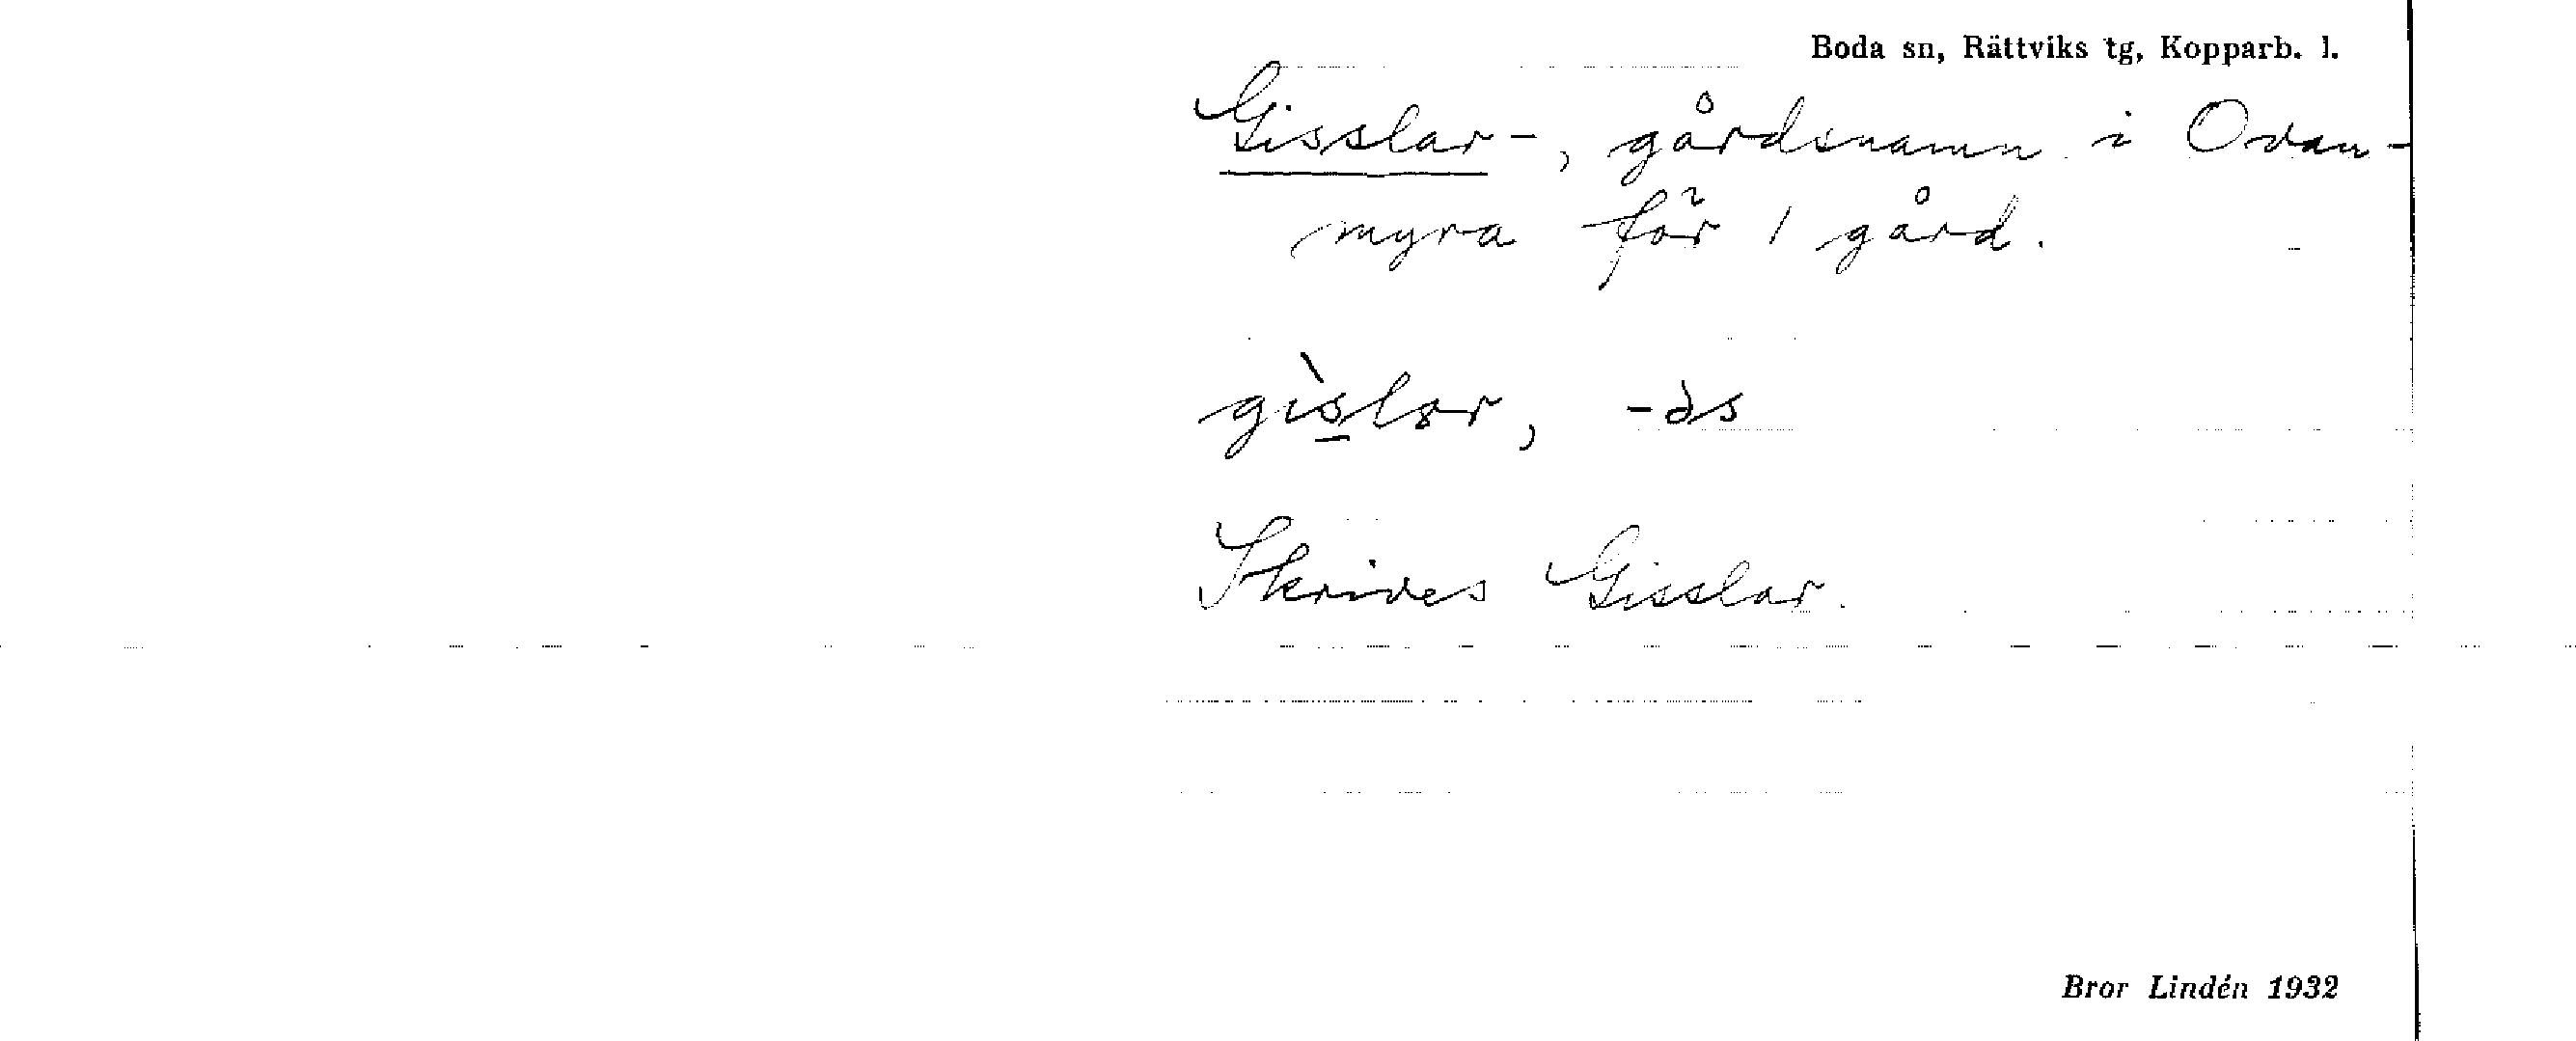 Boda sn, Rättviks tg, Kopparb. l.
Gisslar-, gårdsnamn i Ovan-
myra för 1 gård.
gìs̠lər, -əs
Skrives Gisslar.
Bror Lindén 1932